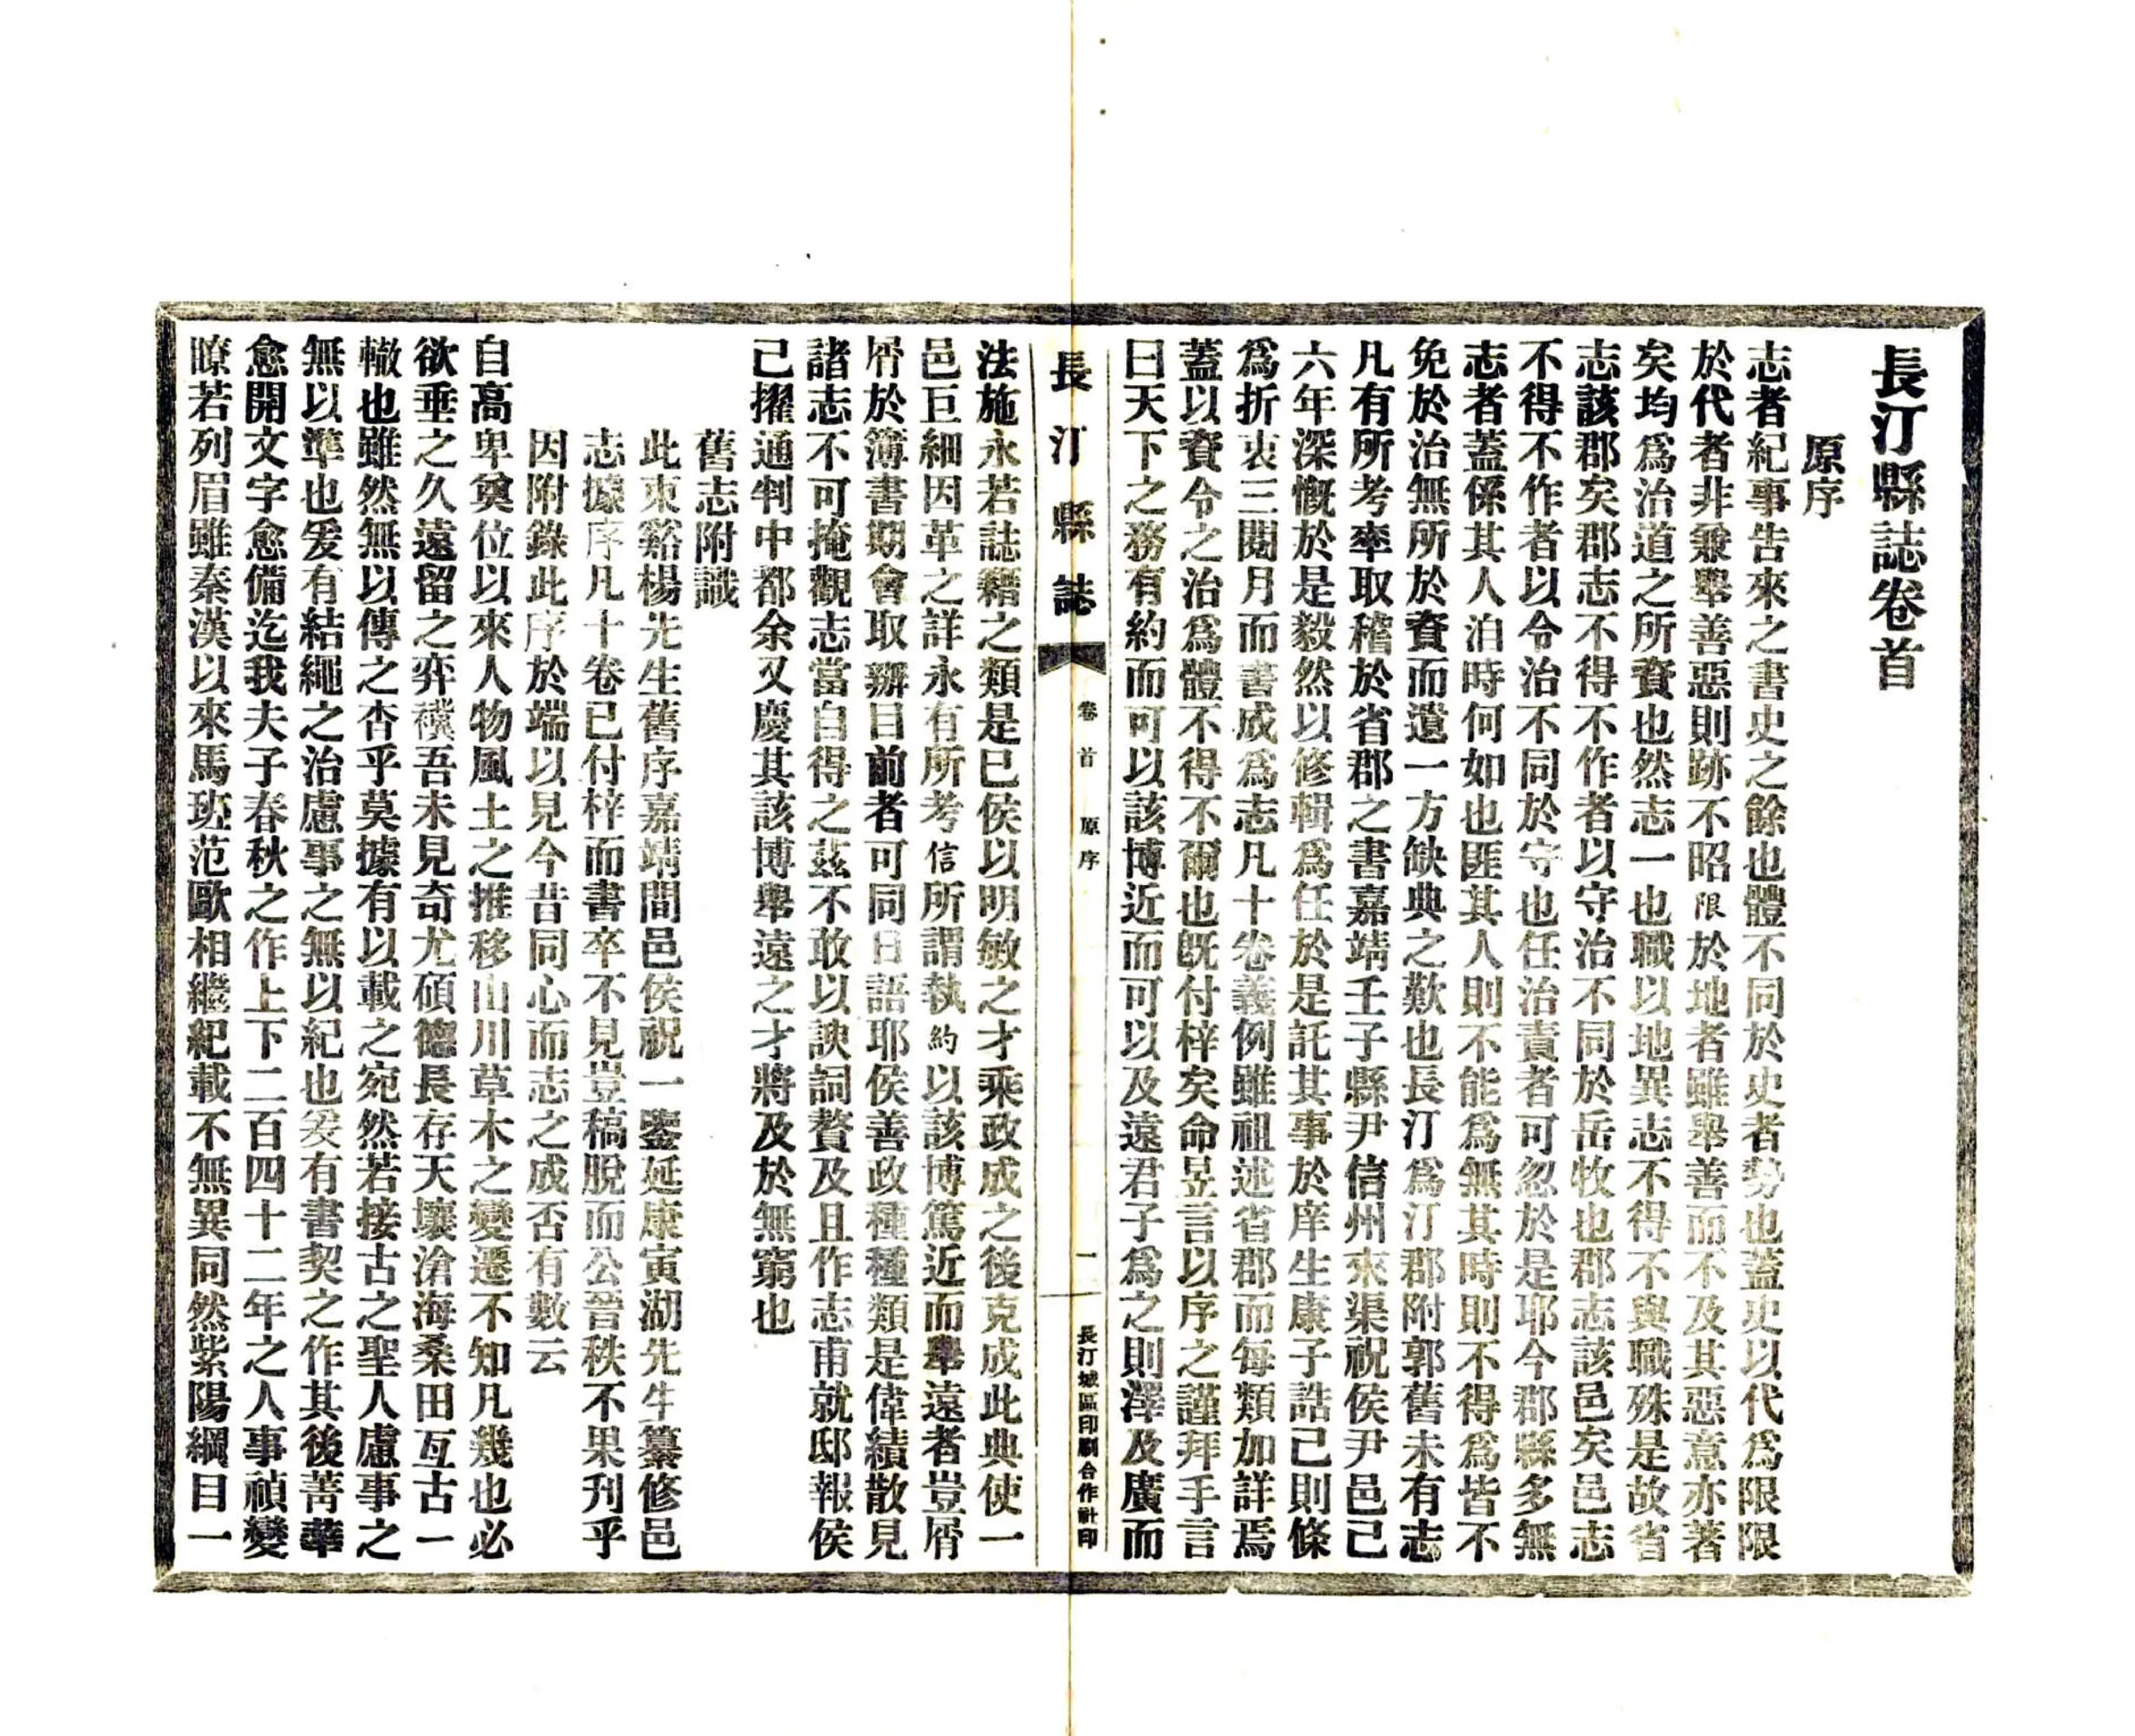 長汀縣誌卷首
原序
志者紀事告來之書史之餘也體不同於史者勢也蓋史以代爲限限
於代者非兼舉善惡則跡不昭限於地者雖舉善而不及其惡意亦著
矣均爲治道之所資也然志一也職以地異志不得不與職殊是故省
志該郡矣郡志不得不作者以守治不同於岳牧也郡志該邑矣邑志
不得不作者以令治不同於守也任治責者可忽於是耶今郡縣多無
志者蓋係其人洎時何如也匪其人則不能爲無其時則不得爲皆不
免於治無所於資而遺一方缺典之歎也長汀爲汀郡附郭舊未有志
凡有所考率取稽於省郡之書嘉靖壬子縣尹信州來渠祝侯尹邑已
六年深慨於是毅然以修輯爲任於是託其事於庠生康子誥己則條
爲折衷三閱月而書成爲志凡十卷義例雖祖述省郡而每類加詳焉
蓋以資令之治爲體不得不爾也既付梓矣命昱言以序之謹拜手言
曰天下之務有約而可以該博近而可以及遠君子爲之則澤及廣而
長汀縣誌
卷首 原序
一
長汀城區印刷合作社印
法施永若誌籍之類是已侯以明敏之才乘政成之後克成此典使一
邑巨細因革之詳永有所考信所謂執約以該博篤近而舉遠者豈屑
屑於簿書期會取辦目前者可同日語耶侯善政種種類是偉績散見
諸志不可掩觀志當自得之茲不敢以諛詞贅及且作志甫就邸報侯
已擢通判中都余又慶其該博舉遠之才將及於無窮也
舊志附識
此東谿楊先生舊序嘉靖間邑侯祝一鑒延康寅湖先生纂修邑
志據序凡十卷已付梓而書卒不見豈稿脫而公晉秩不果刋乎
因附錄此序於端以見今昔同心而志之成否有數云
自高卑奠位以來人物風土之推移山川草木之變遷不知凡幾也必
欲垂之久遠留之弈禩吾未見奇尤碩德長存天壤滄海桑田亙古一
轍也雖然無以傳之杳乎莫據有以載之宛然若接古之聖人慮事之
無以準也爰有結繩之治慮事之無以紀也爰有書契之作其後菁華
愈開文字愈備迄我夫子春秋之作上下二百四十二年之人事禎變
瞭若列眉雖秦漢以來馬班范歐相繼紀載不無異同然紫陽綱目一